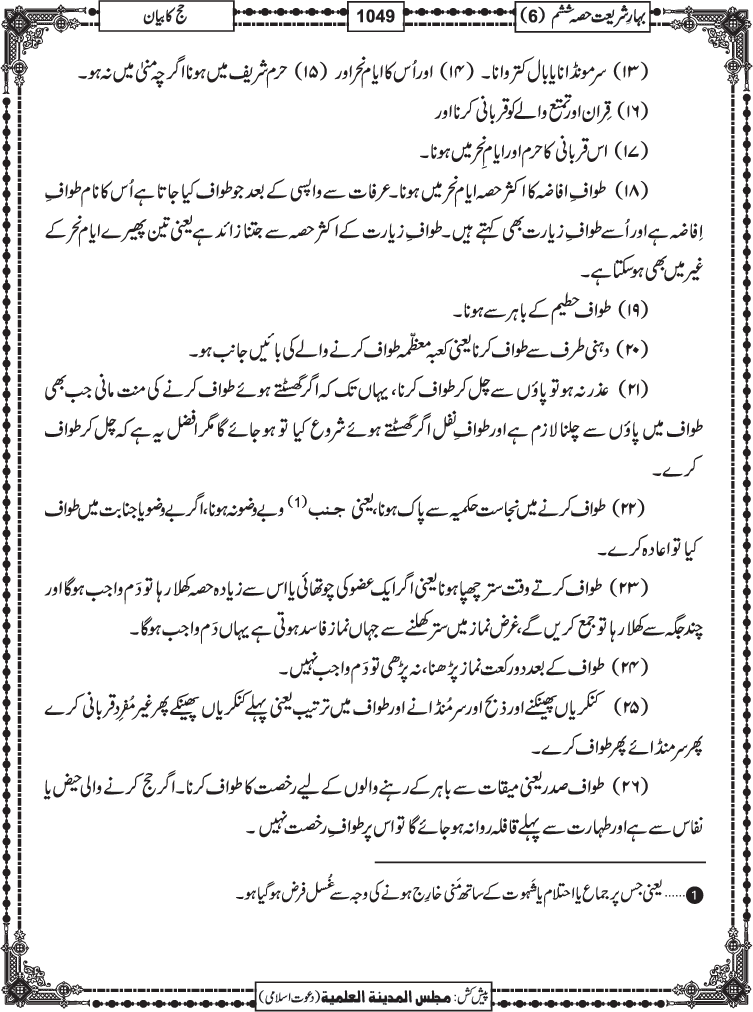 بہارِ شریعت حصہ ششم (6)
1049
حج کا بیان
(۱۳) سر مونڈانا یا بال کتروانا۔ (۱۴) اور اُس کا ایام نحر اور (۱۵) حرم شریف میں ہونا اگرچہ منیٰ میں نہ ہو۔
(۱۶) قِران اور تمتع والے کو قربانی کرنا اور
(۱۷) اس قربانی کا حرم اور ایامِ نحر میں ہونا۔
(۱۸) طوافِ افاضہ کا اکثر حصہ ایام نحر میں ہونا۔ عرفات سے واپسی کے بعد جو طواف کیا جاتا ہے اُس کا نام طوافِ
اِفاضہ ہے اور اُسے طوافِ زیارت بھی کہتے ہیں۔ طوافِ زیارت کے اکثر حصہ سے جتنا زائد ہے یعنی تین پھیرے ایام نحر کے
غیر میں بھی ہوسکتا ہے۔
(۱۹) طواف حطیم کے باہر سے ہونا۔
(۲۰) دہنی طرف سے طواف کرنا یعنی کعبہ معظّمہ طواف کرنے والے کی بائیں جانب ہو۔
(۲۱) عذر نہ ہو تو پاؤں سے چل کر طواف کرنا، یہاں تک کہ اگر گھسٹتے ہوئے طواف کرنے کی منت مانی جب بھی
طواف میں پاؤں سے چلنا لازم ہے اور طوافِ نفل اگر گھسٹتے ہوئے شروع کیا تو ہو جائے گا مگر افضل یہ ہے کہ چل کر طواف
کرے۔
(۲۲) طواف کرنے میں نجاست حکمیہ سے پاک ہونا، یعنی جنب(1) و بے وضو نہ ہونا، اگر بے وضو یا جنابت میں طواف
کیا تو اعادہ کرے۔
(۲۳) طواف کرتے وقت ستر چھپا ہونا یعنی اگر ایک عضو کی چوتھائی یا اس سے زیادہ حصہ کھلا رہا تو دَم واجب ہوگا اور
چند جگہ سے کھلا رہا تو جمع کریں گے، غرض نماز میں ستر کھلنے سے جہاں نماز فاسد ہوتی ہے یہاں دَم واجب ہوگا۔
(۲۴) طواف کے بعد دو رکعت نماز پڑھنا، نہ پڑھی تو دَم واجب نہیں۔
(۲۵) کنکریاں پھینکنے اور ذبح اور سر مُنڈانے اور طواف میں ترتیب یعنی پہلے کنکریاں پھینکے پھر غیر مُفرِد قربانی کرے
پھر سر منڈائے پھر طواف کرے۔
(۲۶) طواف صدر یعنی میقات سے باہر کے رہنے والوں کے لیے رخصت کا طواف کرنا۔ اگر حج کرنے والی حیض یا
نفاس سے ہے اور طہارت سے پہلے قافلہ روانہ ہو جائے گا تو اس پر طوافِ رخصت نہیں۔
1 ...... یعنی جس پر جماع یا احتلام یا شَہوت کے ساتھ مَنی خارِج ہونے کی وجہ سے غُسل فرض ہوگیا ہو۔
پیش کش: مجلس المدینۃ العلمیۃ (دعوت اسلامی)